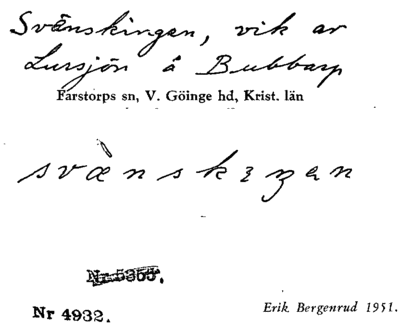 Svänskingan, vik av
Lursjön å Bubbarp
Farstorps sn, V. Göinge hd, Krist. län
Nr 5355.
Nr 4932.
Erik Bergenrud 1951.